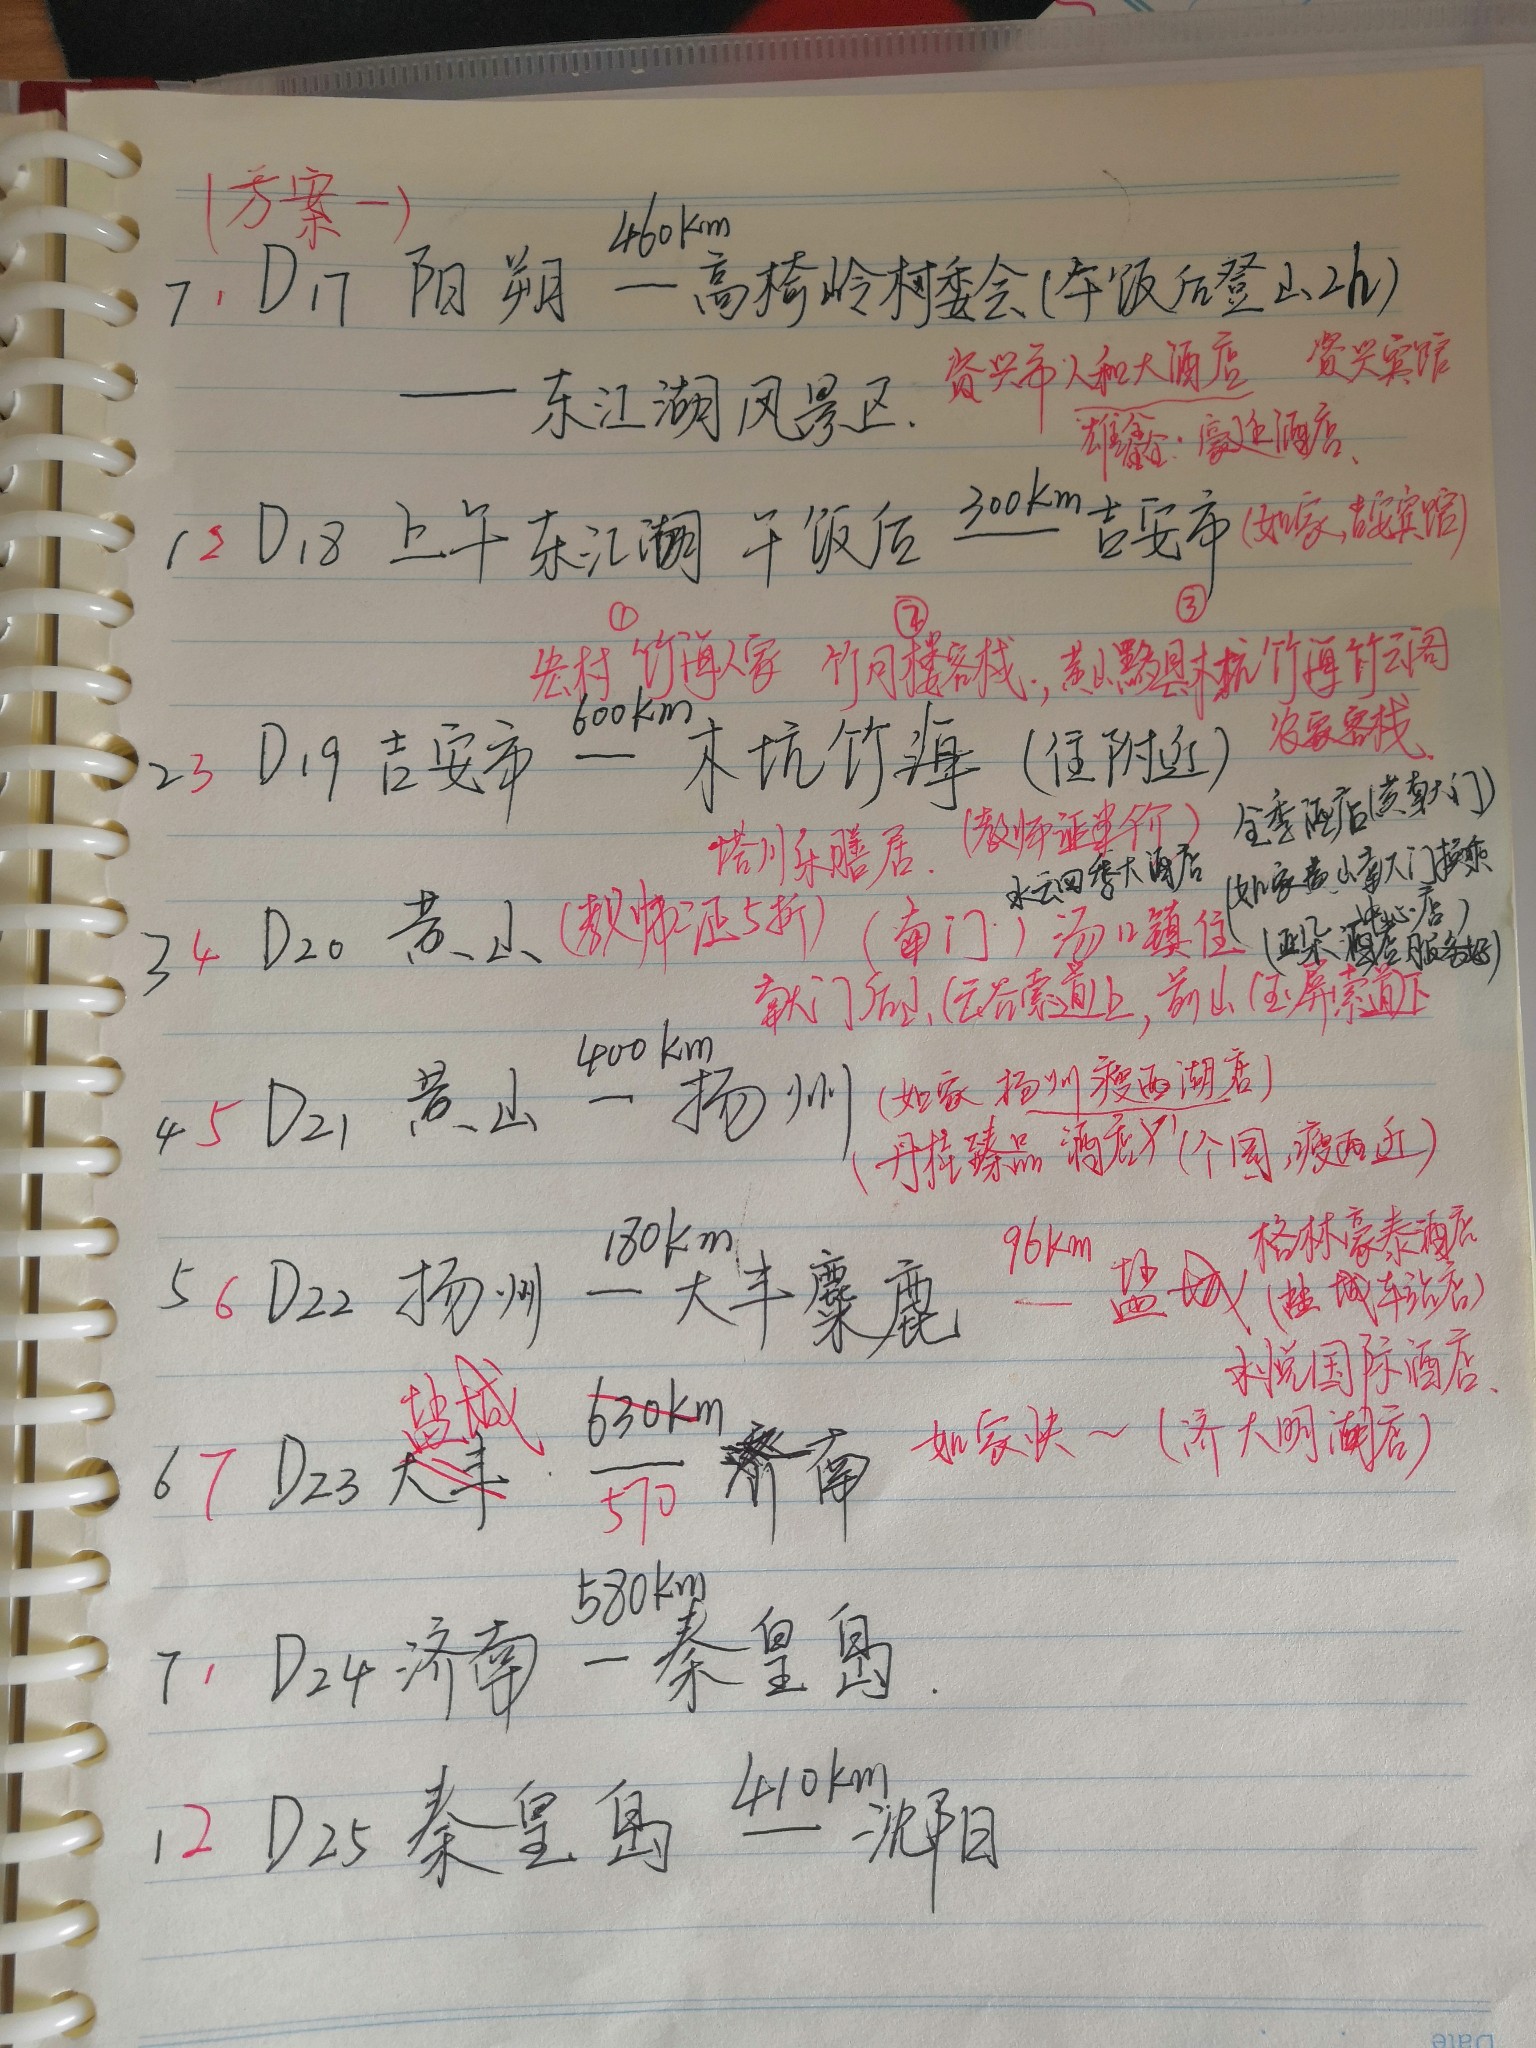 (方案一)
460km
7 1 D17 阳朔 — 高椅岭村委会(午饭后登山2h)
— 东江湖风景区. 资兴市人和大酒店 资兴宾馆
雄鑫·豪廷酒店、
1 2 D18 上午东江湖 午饭后 300km 吉安市(如家,吉安宾馆)
① ② ③
宏村 竹海人家 竹月楼客栈., 黄山黟县木坑竹海竹云阁
农家客栈.
600km
2 3 D19 吉安市 — 木坑竹海 (住附近)
塔川乐膳居. (教师证半价) 全季酒店(黄南大门)
水云四季大酒店 (如家黄山南大门换乘
中心店)
3 4 D20 黄山 (教师证5折) (南门) 汤口镇住 (亚朵酒店服务好)
南大门后山(云谷索道)上, 前山(玉屏索道)下
400km
4 5 D21 黄山 — 扬州 (如家 扬州瘦西湖店)
(丹桂臻品酒店)(个园,瘦西近)
180km 96km 格林豪泰酒店
5 6 D22 扬州 — 大丰麋鹿 — 盐城 (盐城车站店)
水悦国际酒店、
盐城 630km
6 7 D23 大丰 — 济南 如家快~(济大明湖店)
570
580km
7 1 D24 济南 — 秦皇岛.
410km
1 2 D25 秦皇岛 — 沈阳
Date